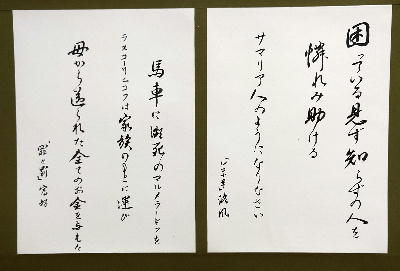 困っている見ず知らずの人を
憐れみ助ける
サマリア人のようになりなさい
馬車に瀕死のマルメラードフを
ラスコーリニコフは家族のもとに運び
母から送られた全てのお金を与えた